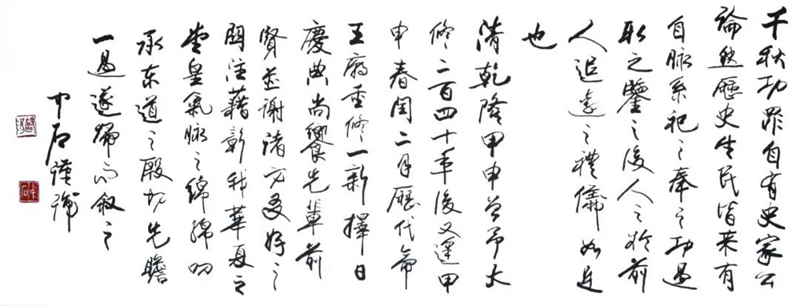 千秋功罪自有史家公
論然歷史生民皆来有
自脉系祀之奉之功過
取之鑒之後人之於前
人追遠之禮儀如是
也
清乾隆甲申曾予大
修二百四十年後又逢甲
申春閏二月歷代帝
王廟重修一新擇日
慶典尚饗先輩前
賢並謝諸方友好之
關注藉彰我華夏之
堂皇氣脉之綿綿叨
承东道之殷切先瞻
一過遂歸而叙之
中石謹識